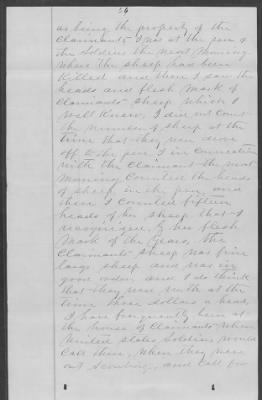 26
as being the property of the
Claimants I was at the pen of
the Soldiers the next morning
where the sheep had been
killed and there I saw the
heads and flesh mark of
Claimants sheep which I
well knew, I did not count
the number of sheep at the
time that they were drove
off to the pen, I in connection
with the Claimant the next
morning Counted the heads
of sheep in the pen, and
there I counted fifteen
heads of her sheep that I
recognized by her flesh
mark of the Years, the
Claimants sheep was fine
large sheep and was in
good order, and I do think
that they were worth at the
time three dollars a head,
I have frequently been at
the house of Claimants when
United States Soldiers would
Call there, when they were
out scouting, and call for